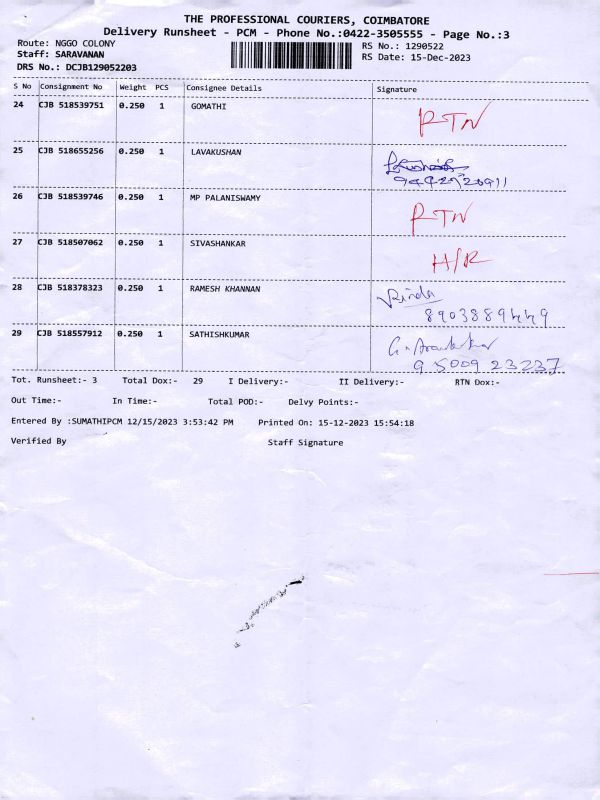 THE PROFESSIONAL COURIERS, COIMBATORE
Delivery Runsheet - PCM - Phone No.:0422-3505555 - Page No.:3
Route: NGGO COLONY
RS No.: 1290522
Staff: SARAVANAN
RS Date: 15-Dec-2023
DRS No.: DCJB129052203
S No Consignment No Weight PCS Consignee Details Signature
24 CJB 518539751 0.250 1 GOMATHI RTN
25 CJB 518655256 0.250 1 LAVAKUSHAN
26 CJB 518539746 0.250 1 MP PALANISWAMY RTN
27 CJB 518507062 0.250 1 SIVASHANKAR H/R
28 CJB 518378323 0.250 1 RAMESH KHANNAN
8903889449
29 CJB 518557912 0.250 1 SATHISHKUMAR
9500923237
Tot. Runsheet:- 3 Total Dox:- 29 I Delivery:- II Delivery:- RTN Dox:-
Out Time:- In Time:- Total POD:- Delvy Points:-
Entered By :SUMATHIPCM 12/15/2023 3:53:42 PM Printed On: 15-12-2023 15:54:18
Verified By Staff Signature